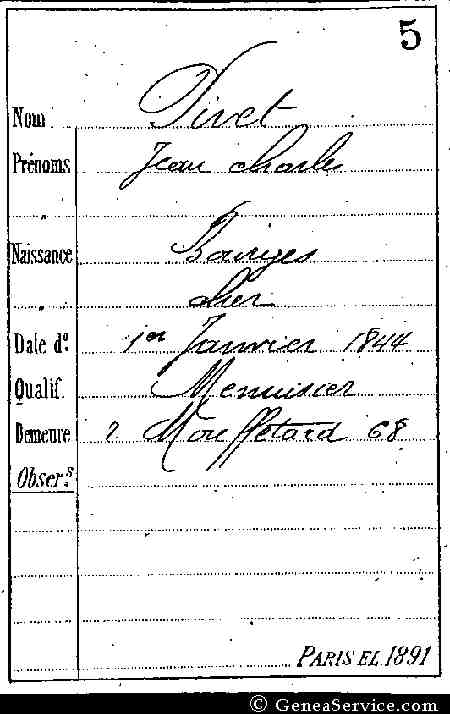 5
Nom Pivet
Prénoms Jean Charles
Naissance Bourges
Cher
Date d° 1er Janvier 1844
Qualif. Menuisier
Demeure r Mouffetard 68
Obser.s
PARIS EL 1891
© GeneaService.com